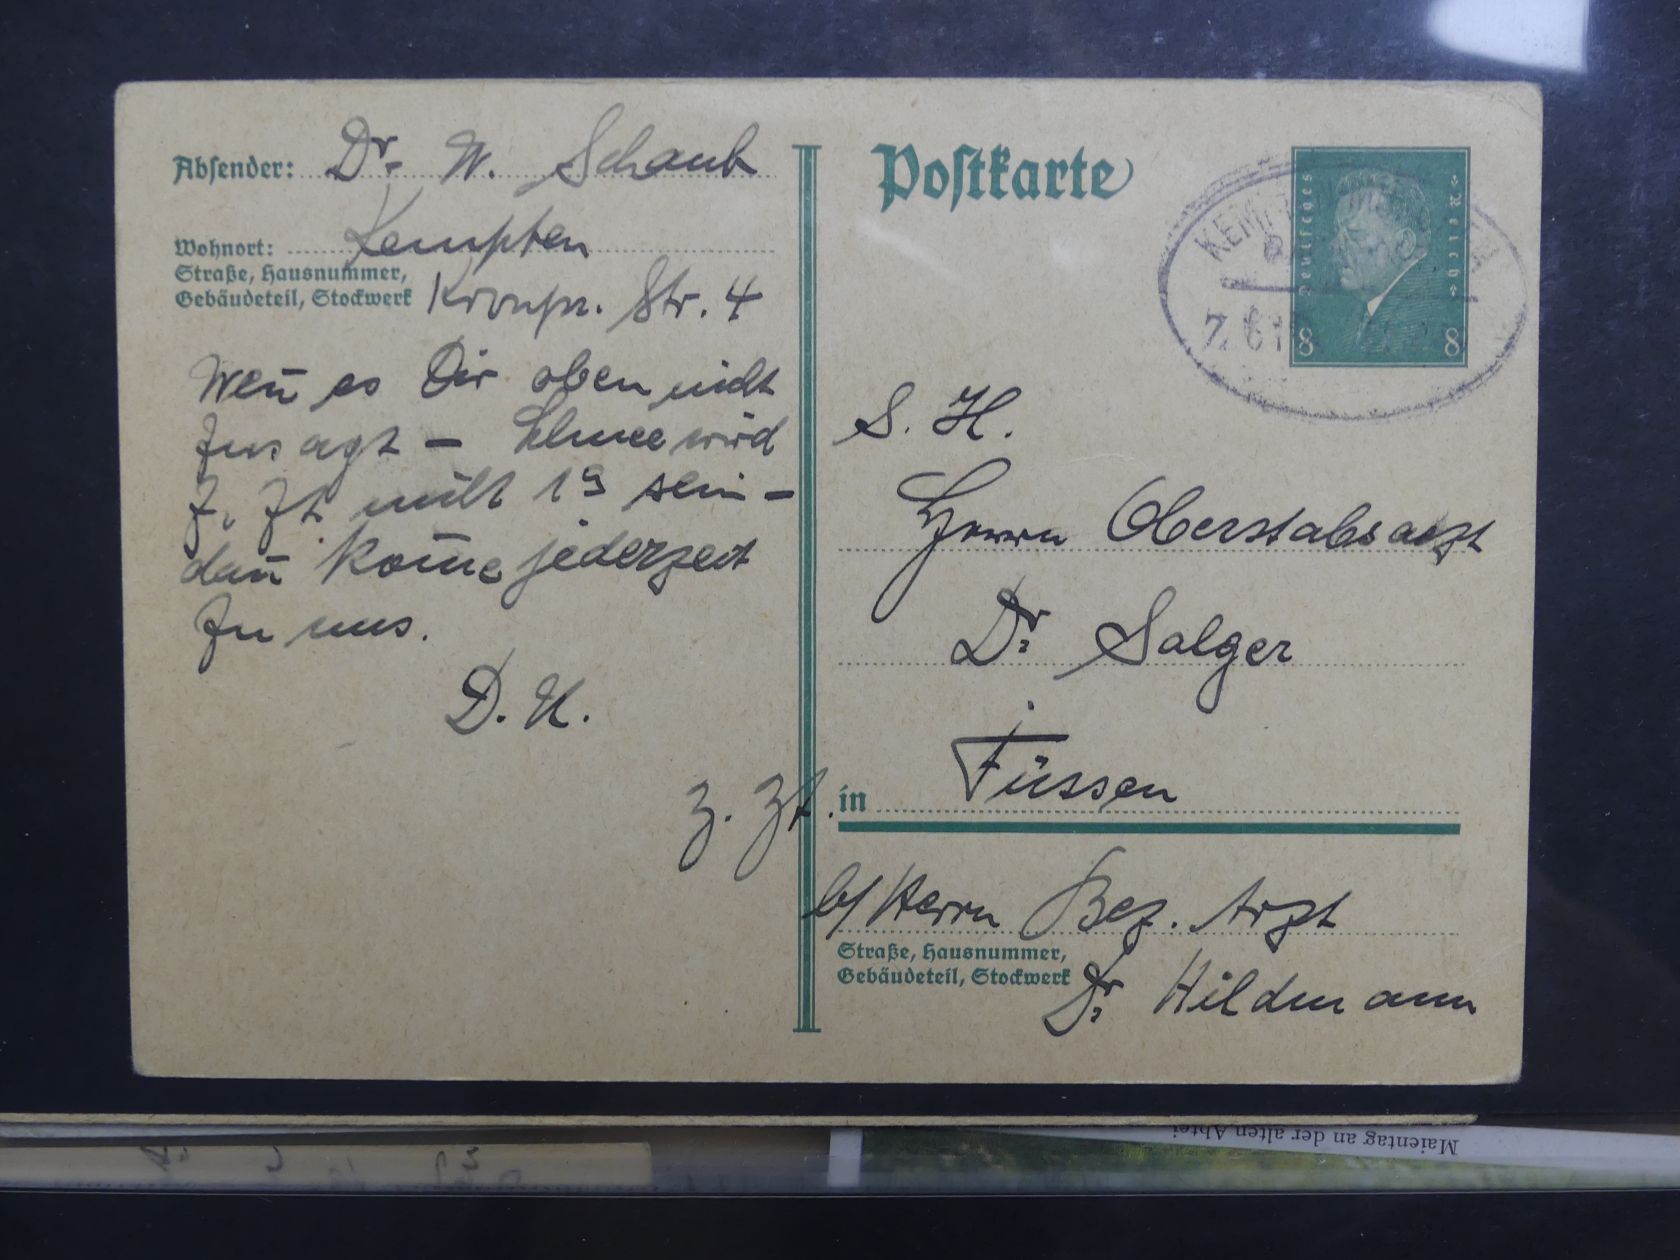 Absender: Dr. W. Schaub
Wohnort: Kempten
Straße, Hausnummer,
Gebäudeteil, Stockwerk Kronpr. Str. 4
Wen̄ es Dir oben nicht
zusagt – Schnee wird
z. Zt. nicht 1ª sein –
dan̄ kom̄e jederzeit
zu uns.
D. U.
Postkarte
Deutsches Reich
8 8
S. H.
Herrn Oberstabsarzt
Dr. Salger
z. Zt. in Füssen
b/ Herrn Bez. Arzt
Straße, Hausnummer,
Gebäudeteil, Stockwerk Dr. Hildmann
Maientag an der alten Abtei